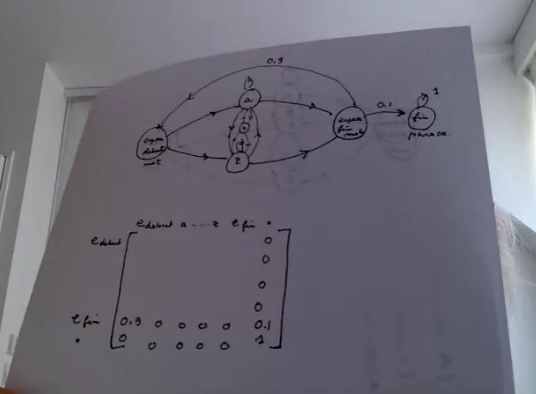 0.9
a
1
0.1
espace
début
mot
z
espace
fin
mot
fin
phrase.
e début a ---- z e fin •
e début 0
0
0
0
e fin 0.9 0 0 0 0 0.1
• 0 0 0 0 0 1